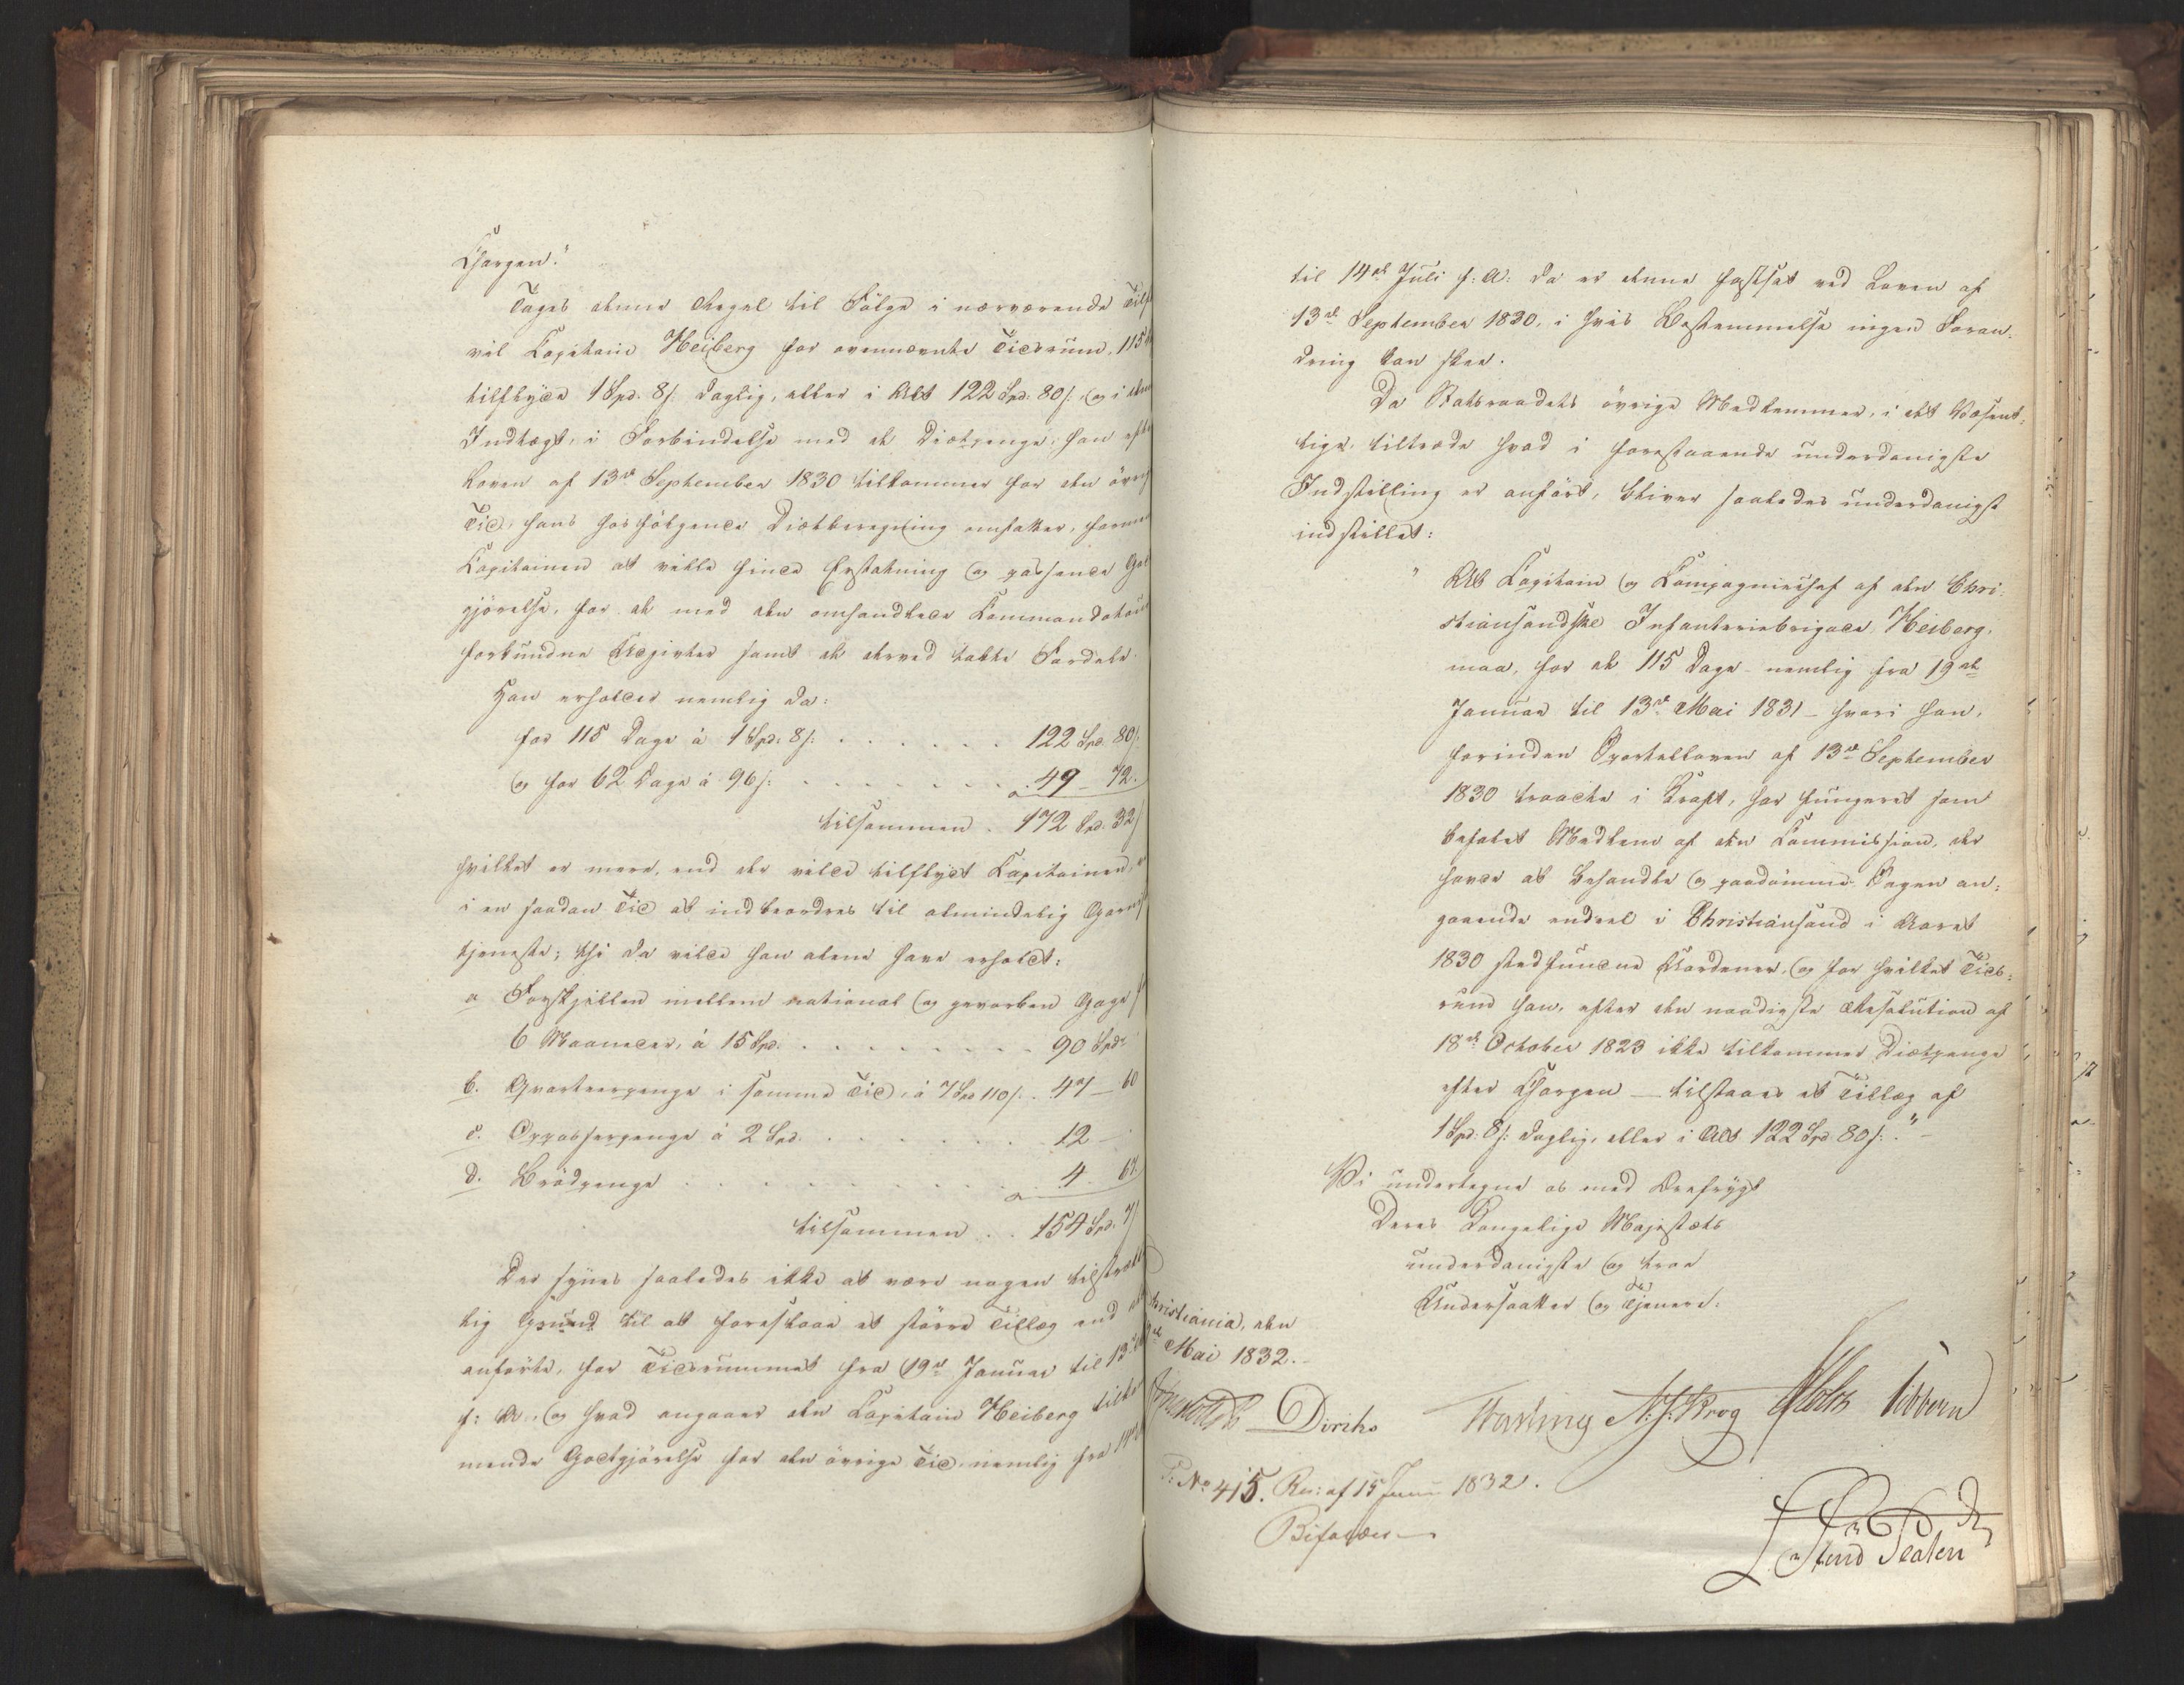 Chargen."
Tages denne Regel til Følge i nærværende Tilf
vil Capitain Heiberg for ovennævnte Tidsrum, 115
tilflyde 1 Spd. 8 s. daglig, eller i Alt 122 Spd. 80 s., og i den
Indtægt, i Forbindelse med de Diætpenge, han efter
Loven af 13de September 1830 tilkommer for den øvrige
Tid, hans hosfølgende Diætberegning omfatter, formenes
Capitainen at ville finde Erstatning og passende God
gjørelse, for de med den omhandlede Commando
forbundne Udgivter samt de derved tabte Fordele.
Han erholder nemlig da:
for 115 Dage à 1 Spd. 8 s. . . . . . 122 Spd. 80 s.
og for 62 Dage à 96 s. . . . . . . 49 - 72.
tilsammen . 172 Spd. 32 s.
hvilket er mere, end der vilde tilflydt Capitainen,
i en saadan Tid at indbeordres til almindelig Garnis
tjeneste; thi da vilde han alene have erholdt:
a Forskjellen mellem national og gevorben Gage
6 Maaneder, à 15 Spd. . . . . . . 90 Spd.
b. Qvarteerpenge i samme Tid, à 7 Spd 110 s. . 47 - 60
c. Oppasserpenge à 2 Spd. . . . . . . 12 -
d. Brødpenge . . . . . . . . 4 - 67.
tilsammen . . 154 Spd. 7 s.
Der synes saaledes ikke at være nogen tilstræk
lig Grund til at foreslaae et større Tillæg end
anførte, for Tidsrummet fra 19de Januar til 13de
f: A., og hvad angaaer den Capitain Heiberg tilkom
mende Godtgjørelse for den øvrige Tid, nemlig fra 14de
til 14de Juli f: A: da er denne fastsat ved Loven af
13de September 1830, i hvis Bestemmelse ingen Foran-
dring kan skee.
Da Statsraadets øvrige Medlemmer, i det Væsent-
lige, tiltræde hvad i forestaaende underdanigste
Indstilling er anført, bliver saaledes underdanigst
indstillet:
" At Capitain og Compagniechef af den Chri-
stiansandske Infanteriebrigade, Heiberg,
maa, for de 115 Dage - nemlig fra 19de
Januar til 13de Mai 1831 - hvori han,
forinden Sportelloven af 13de September
1830 traadte i Kraft, har fungeret som
befalet Medlem af den Commission, der
havde at behandle og paadømme Sagen an-
gaaende endeel i Christiansand i Aaret
1830 stedfundne Uordener, og for hvilket Tids-
rum han, efter den naadigste Resolution af
18de October 1823 ikke tilkommer Diætpenge
efter Chargen — tilstaaes et Tillæg af
1 Spd. 8 s. daglig, eller i Alt 122 Spd. 80 s. ." -
Vi undertegne os med Ærefrygt
Deres Kongelige Majestæts
underdanigste og troe
Undersaatter og Tjenere.
Christiania, den
Mai 1832.
Diriks N. J. Krog Holst Vibe
P: No 415. Res: af 15 Juni 1832.
Bifaldes